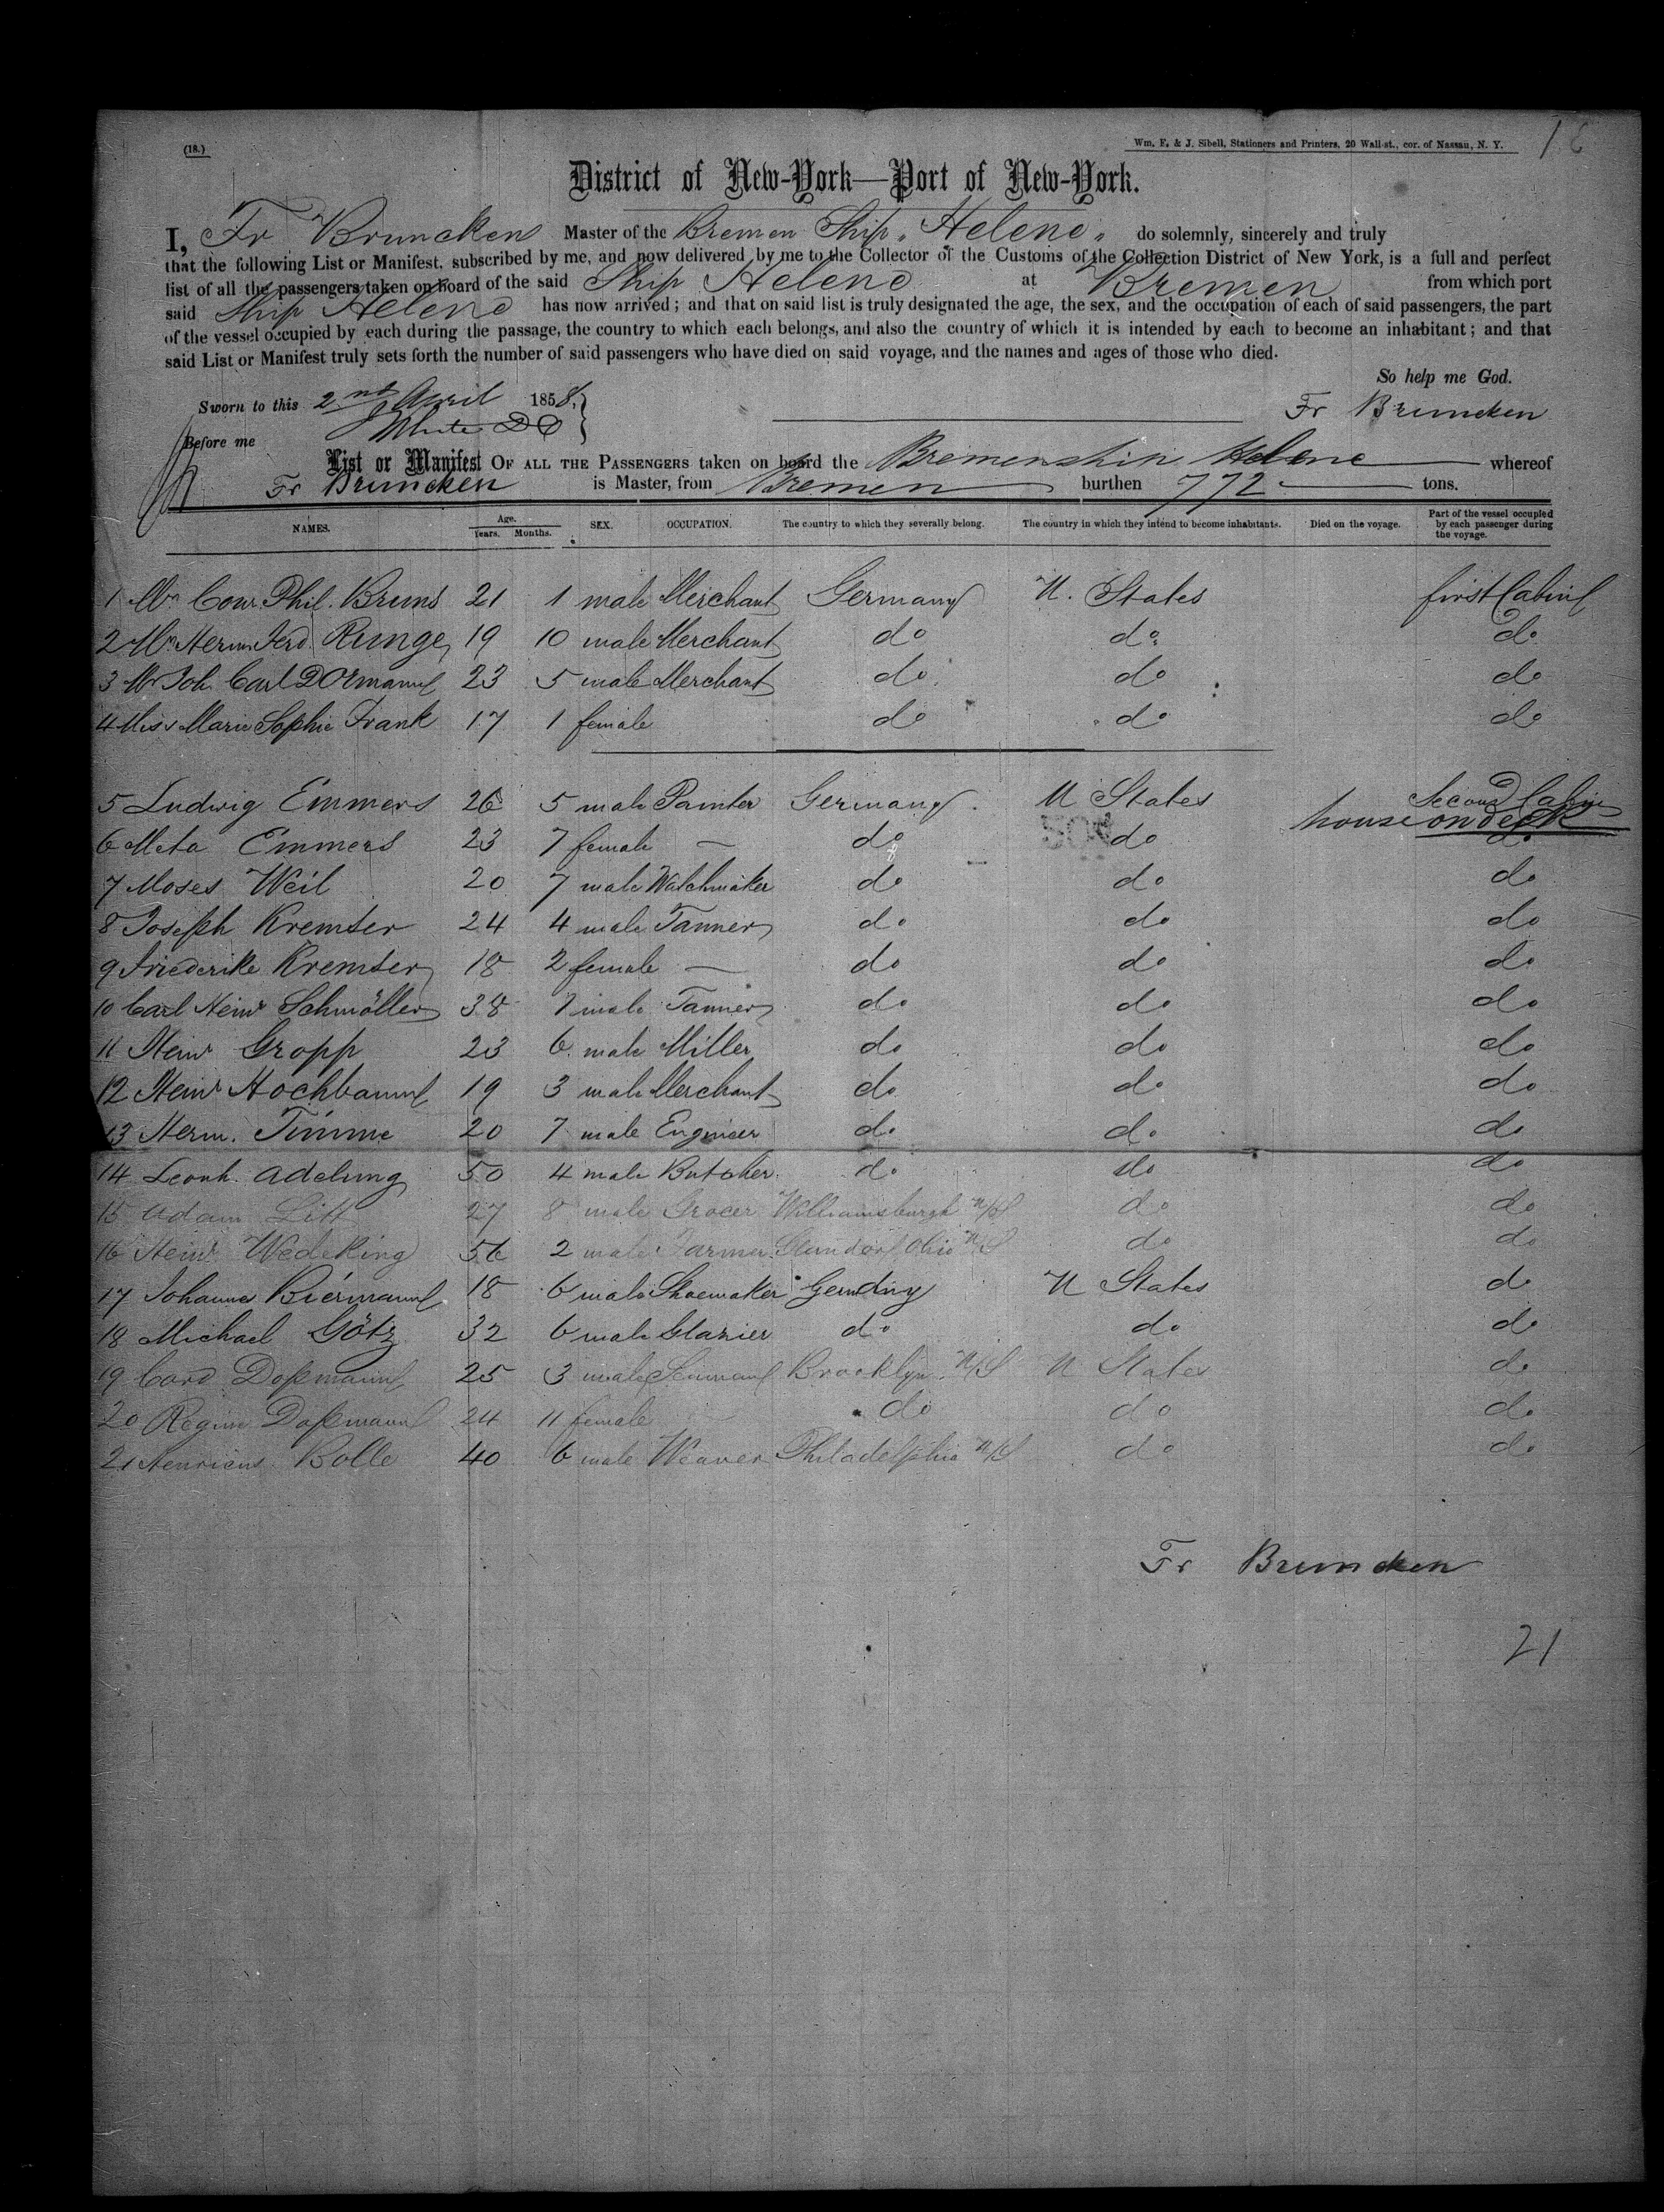 (18.)
Wm. F. & J. Sibell, Stationers and Printers, 20 Wall-st., cor. of Nassau, N. Y.
District of New-York—Port of New-York.
I, Fr Bruncken Master of the Bremen Ship "Helene" do solemnly, sincerely and truly
that the following List or Manifest, subscribed by me, and now delivered by me to the Collector of the Customs of the Collection District of New York, is a full and perfect
list of all the passengers taken on board of the said Ship Helene at Bremen from which port
said Ship Helene has now arrived; and that on said list is truly designated the age, the sex, and the occupation of each of said passengers, the part
of the vessel occupied by each during the passage, the country to which each belongs, and also the country of which it is intended by each to become an inhabitant; and that
said List or Manifest truly sets forth the number of said passengers who have died on said voyage, and the names and ages of those who died.
So help me God.
Sworn to this 2nd April 1858, Fr Bruncken
Before me White
List or Manifest OF ALL THE PASSENGERS taken on board the Bremenship Helene whereof
Fr Bruncken is Master, from Bremen burthen 772 tons.
NAMES. Age. Years. Months. SEX. OCCUPATION. The country to which they severally belong. The country in which they intend to become inhabitants. Died on the voyage. Part of the vessel occupied by each passenger during the voyage.
1 Mr Conr. Phil. Bruns 21 1 male Merchant Germany U. States first Cabin
2 Mr Herm. Ferd. Runge 19 10 male Merchant do do do
3 Mr Joh. Carl DOrmann 23 5 male Merchant do do do
4 Miss Marie Sophie Frank 17 1 female do do do
5 Ludwig Emmers 26 5 male Painter Germany U States Second Cabin
house on deck
6 Meta Emmers 23 7 female — do do do
7 Moses Weil 20 7 male Watchmaker do do do
8 Joseph Kremter 24 4 male Tanner do do do
9 Friederike Kremter 18 2 female — do do do
10 Carl Heinr Schmöller 38 1 male Tanner do do do
11 Heinr Gropp 23 6 male Miller do do do
12 Heinr Hochbaum 19 3 male Merchant do do do
13 Herm. Timme 20 7 male Engineer do do do
14 Leonh. Adelung 50 4 male Butcher do do do
15 Adam Litt 27 8 male Grocer Williamsburgh U/S do do
16 Heinr Wedeking 56 2 male Farmer Ohio U/S do do
17 Johannes Biermann 18 6 male Shoemaker Germany U States do
18 Michael Götz 32 6 male Glazier do do do
19 Cord Doßmann 25 3 male Seaman Brooklyn U/S U States do
20 Regine Doßmann 24 11 female do do do
21 Henricus Bolle 40 6 male Weaver Philadelphia U/S do do
Fr Bruncken
21